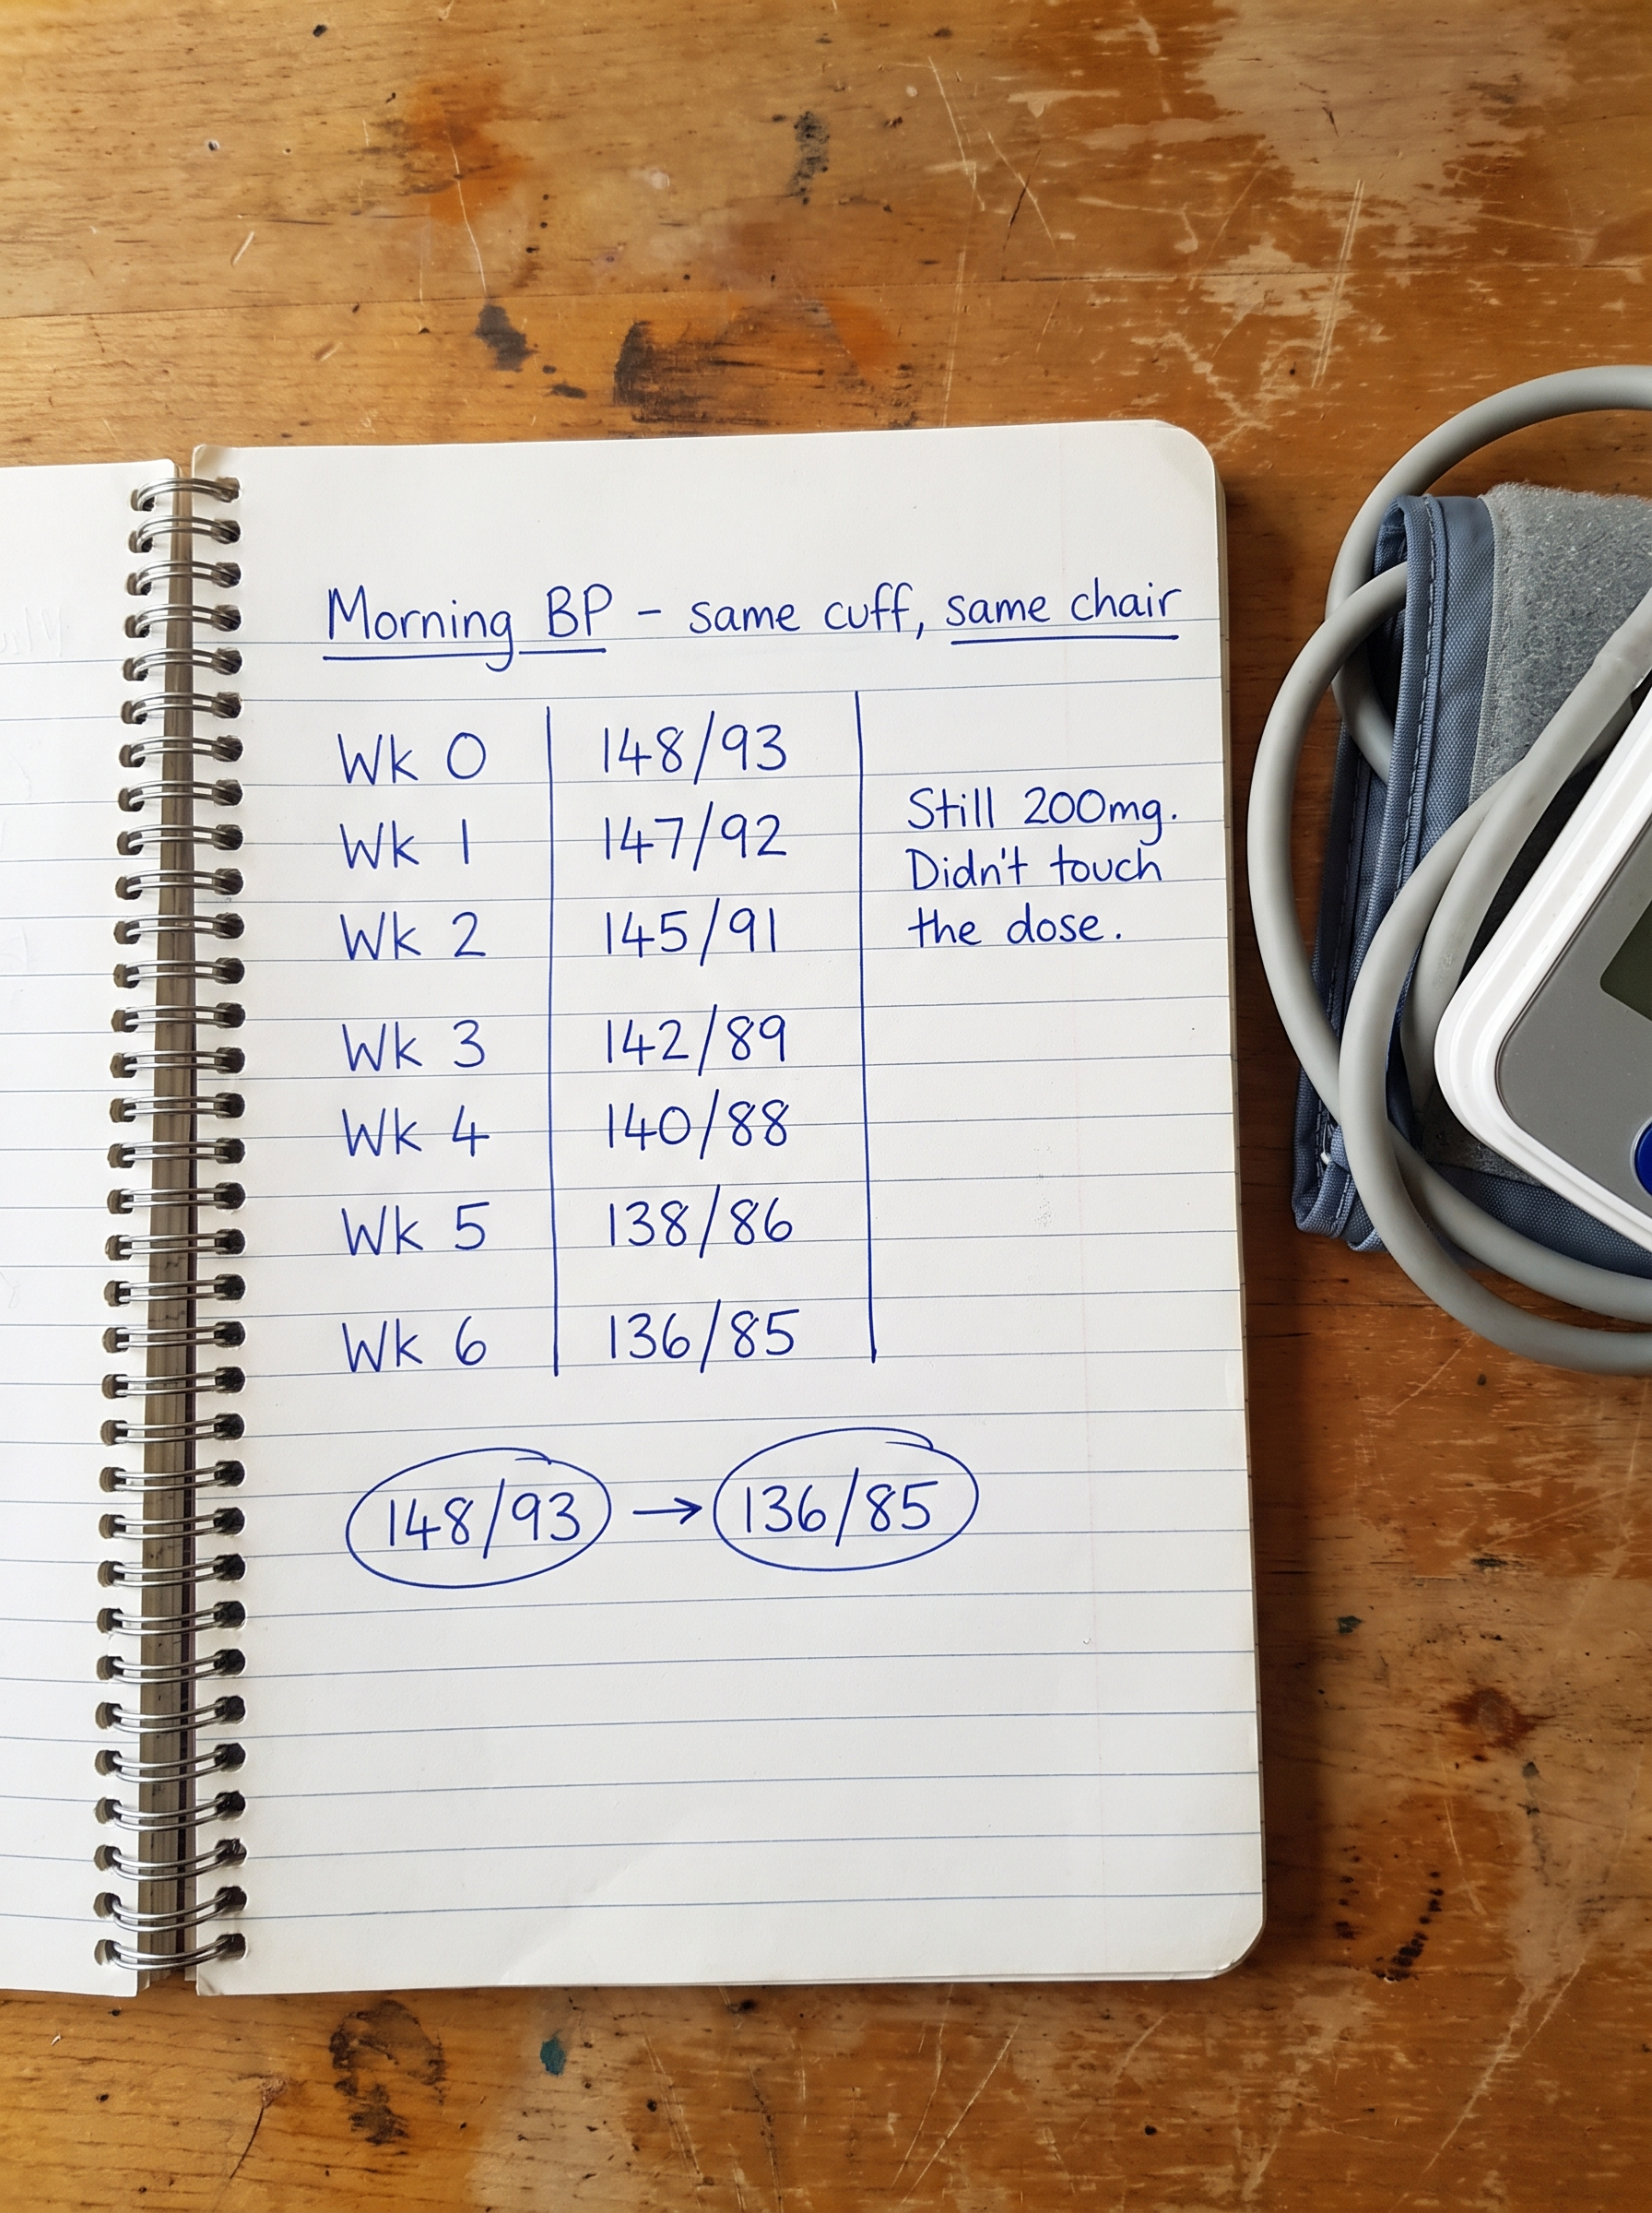 Morning BP - same cuff, same chair
Wk 0 148/93
Wk 1 147/92
Wk 2 145/91
Wk 3 142/89
Wk 4 140/88
Wk 5 138/86
Wk 6 136/85
Still 200mg.
Didn't touch
the dose.
148/93 → 136/85